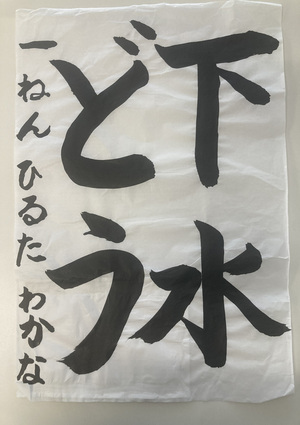 下水
どう
一ねん ひるた わかな